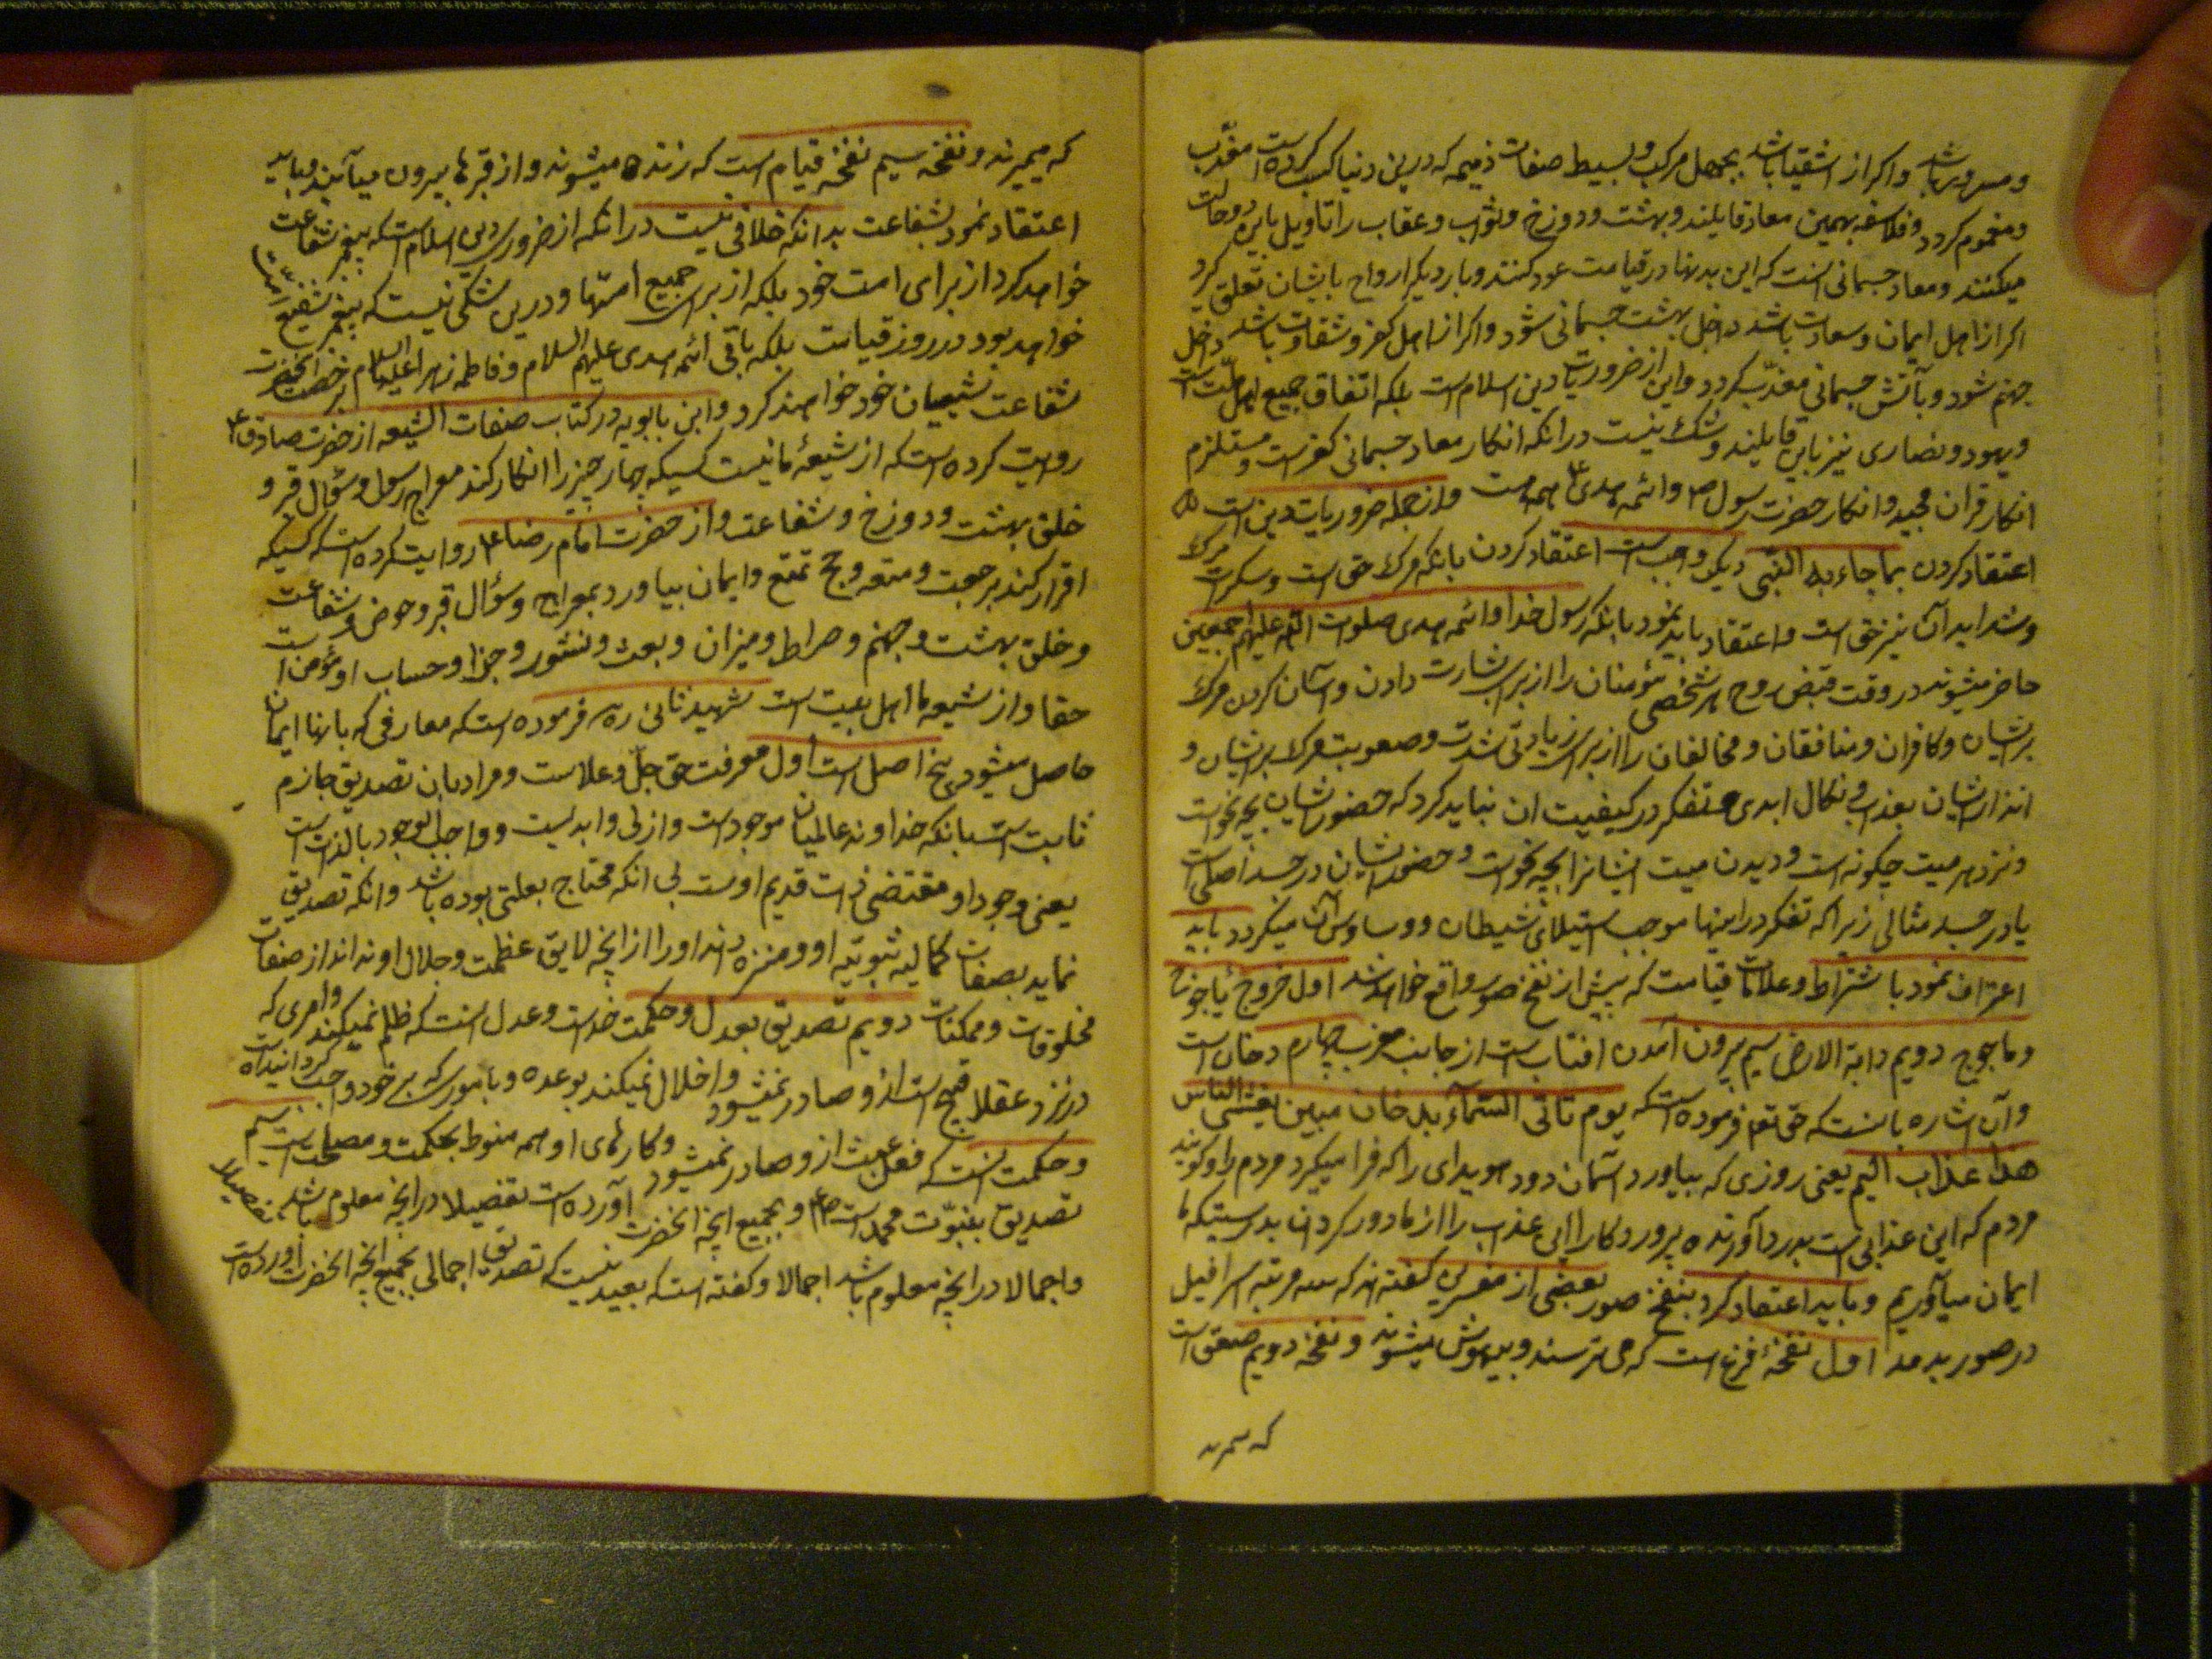 و مسرور باشد و اگر از اشقیا باشد بجهل مرکب و بسیط صفات ذمیمه که درین دنیا کسب کرده است معذّب
و مغموم کردد و فلاسفه بهمین معاد قایلند و بهشت و دوزخ و ثواب و عقاب را تاویل باین دو حالت
میکنند و معاد جسمانی انست که این بدنها در قیامت عود کنند و بار دیگر ارواح بایشان تعلق گیرد
اکر از اهل ایمان و سعادت باشد داخل بهشت جسمانی شود و اکر از اهل کفر و شقاوت باشد داخل
جهنم شود و بآتش جسمانی معذّب کردد و این از ضروریات دین اسلام است بلکه اتفاق جمیع اهل ملّت است
و یهود و نصاری نیز باین قایلند و شک نیست در انکه انکار معاد جسمانی کفر است و مستلزم
انکار قران مجید و انکار حضرت رسول ص و ائمه هدی ع همه است و از جمله ضروریات دین است
اعتقاد کردن بما جاء به النّبی دیکر واجب است اعتقاد کردن بانکه مرک حق است و سکرات مرک
و شداید آن نیز حق است و اعتقاد باید نمود بانکه رسول خدا و ائمه هدی صلوات اللّه علیهم اجمعین
حاضر میشوند در وقت قبض روح هر شخصی مؤمنان را از برای بشارت دادن و اسان کردن مرک
بر ایشان و کافران و منافقان و مخالفان را از برای زیادتی شدت و صعوبت مرک بر ایشان و
انذار ایشان بعذاب و نکال ابدی و تفکر در کیفیت ان نباید کرد که حضور ایشان بچه نحو است
و نزد هر میت چکونه است و دیدن میت ایشانرا بچه نحو است و حضور ایشان در جسد اصلی است
یا در جسد مثالی زیرا که تفکر در اینها موجب استیلای شیطان و وساوس آن میکردد باید
اعتراف نمود با شتراط و علامات قیامت که پیش از نفخ صور واقع خواهد شد اول خروج یاجوج
و ماجوج دویم دابة الارض سیم بیرون آمدن افتاب است از جانب مغرب چهارم دخان است
و آن اشاره بانست که حق تعم فرموده است که یوم تاتی السّمآء بدخان مبین یغشی النّاس
هذا عذاب الیم یعنی روزی که بیاورد آسمان دود هویدای را که فرا میکیرد مردم را و کویند
مردم که این عذابی است بدرد آورنده پروردکارا این عذاب را از ما دور کردان بدرستیکه ما
ایمان میآوریم و باید اعتقاد کرد بنفخ صور بعضی از مفسرین کفته اند که سه مرتبه اسرافیل
در صور بدمد اول نفخهٔ فزع است که می ترسند و بیهوش میشوند و نفخه دویم صعق است
که میمیرند
که میمیرند و نفخه سیم نفخهٔ قیام است که زنده میشوند و از قبرها بیرون میآیند و باید
اعتقاد نمود بشفاعت بدانکه خلافی نیست در انکه از ضروری دین اسلام است که پیغمبر شفاعت
خواهد کرد از برای امت خود بلکه از برای جمیع امتها و درین شکی نیست که پیغمبر شفیع امّت
خواهد بود در روز قیامت بلکه باقی ائمه هدی علیهم السلام و فاطمه زهرا علیها السلام برخصت انحضرت
شفاعت شیعیان خود خواهند کرد و ابن بابویه در کتاب صفات الشیعه از حضرت صادق ع
روایت کرده است که از شیعهٔ ما نیست کسیکه چهار چیز را انکار کند معراج رسول و سؤال قبر و
خلق بهشت و دوزخ و شفاعت و از حضرت امام رضا ع روایت کرده است که کسیکه
اقرار کند برجعت و متعه و حج تمتع و ایمان بیاورد بمعراج و سؤال قبر و حوض و شفاعت
و خلق بهشت و جهنم و صراط و میزان و بعث و نشور و جزا و حساب او مؤمن است
حقا و از شیعه ما اهل بیت است شهید ثانی ره فرموده است که معارفی که بانها ایمان
حاصل میشود پنج اصل است اول معرفت حق جلّ و علاست و مراد بان تصدیق جازم
ثابت است بانکه خداوند عالمیان موجود است و ازلی و ابدیست و واجب الوجود بالذات است
یعنی وجود او مقتضی ذات قدیم اوست بی انکه محتاج بعلتی بوده باشد و انکه تصدیق
نماید بصفات کمالیه ثبوتیه او و منزه داند او را از انچه لایق عظمت و جلال او نداند از صفات
مخلوقات و ممکنات دویم تصدیق بعدل و حکمت خداست و عدل انست که ظلم نمیکند و امری که
در نزد عقلا قبیح است از و صادر نمیشود و اخلال نمیکند بوعده و بامورى که بر خود واجب کردانیده است
و حکمت انست که فعل عبث از و صادر نمیشود و کارهای او همه منوط بحکمت و مصلحت است سیم
تصدیق بنبوّت محمد است ص و بجمیع انچه انحضرت آورده است تفصیلا در انچه معلوم باشد تفصیلا
و اجمالا در انچه معلوم باشد اجمالا و کفته است که بعید نیست که تصدیق اجمالی بجمیع انچه انحضرت اورده است